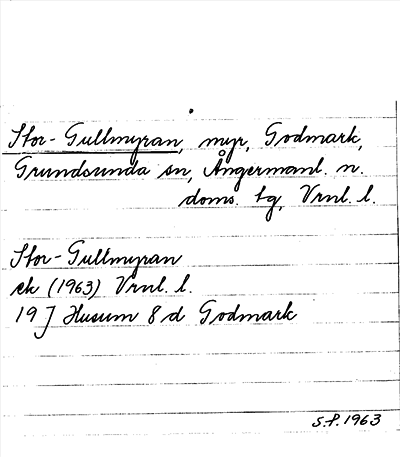 Stor-Gullmyran, myr, Godmark,
Grundsunda sn, Ångermanl. n.
doms. tg, Vrnl. l.
Stor-Gullmyran
ek (1963) Vrnl. l.
19 J Husum 8 d Godmark
S.F. 1963